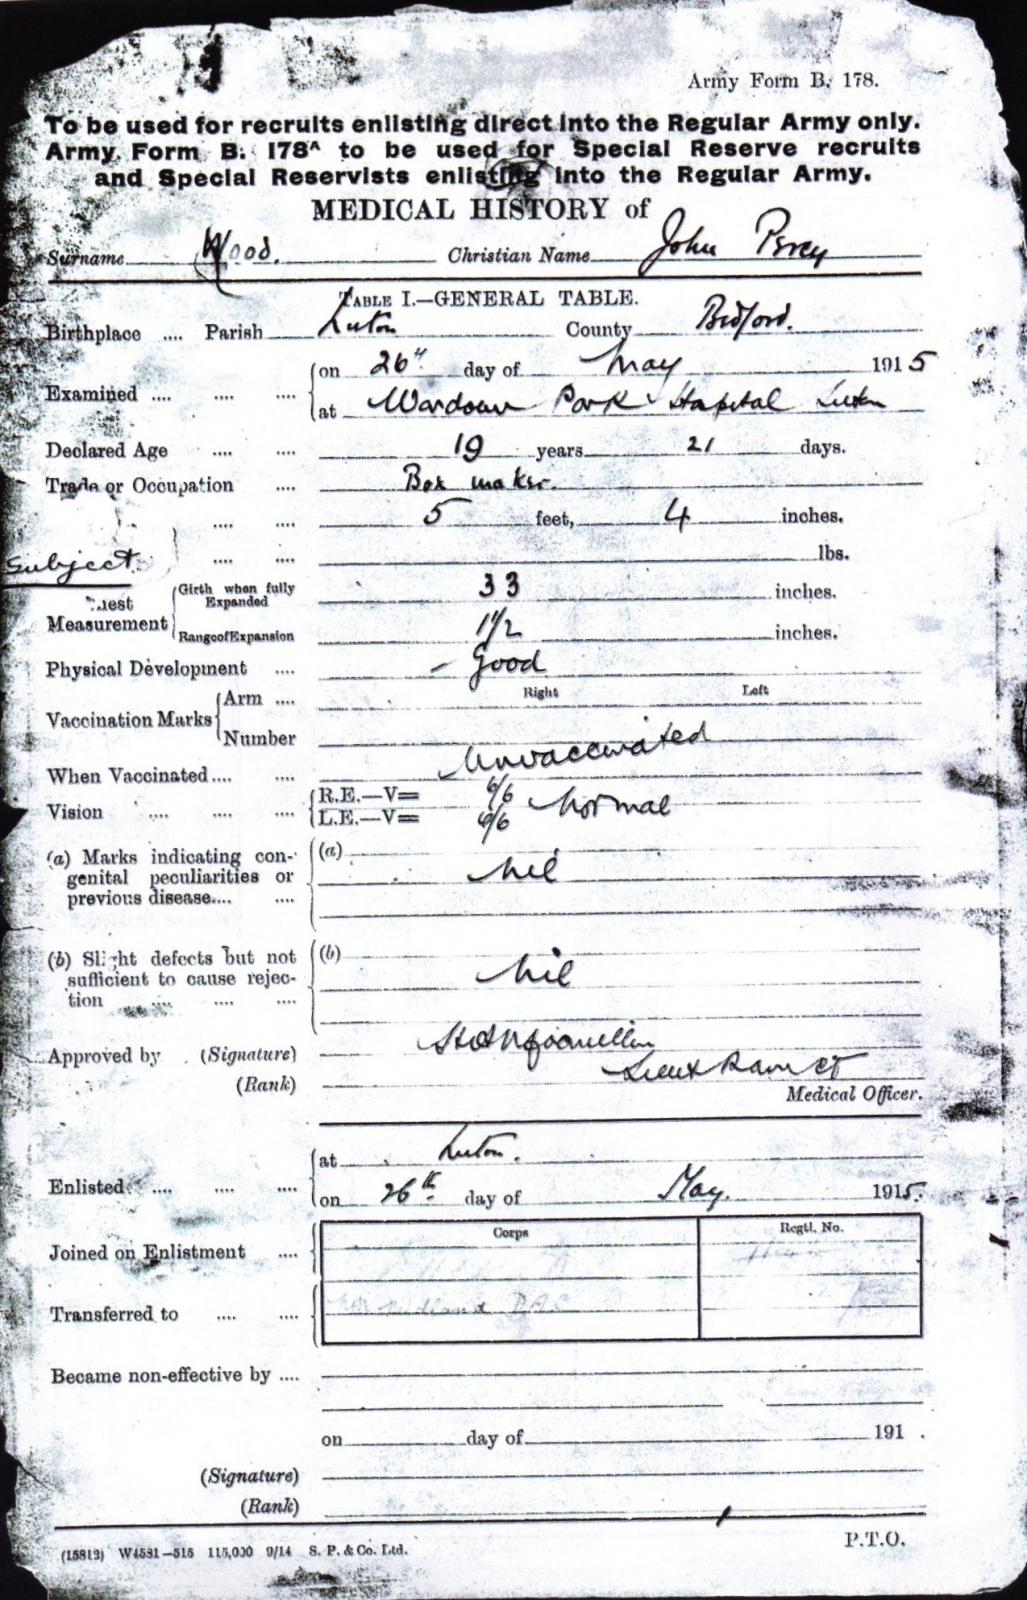 Army Form B. 178.
To be used for recruits enlisting direct into the Regular Army only.
Army Form B. 178A to be used for Special Reserve recruits
and Special Reservists enlisting into the Regular Army.
MEDICAL HISTORY of
Surname Wood. Christian Name John Percy
TABLE I.—GENERAL TABLE.
Birthplace .... Parish Luton County Bedford.
Examined .... .... .... on 26th day of May 1915
at Wardown Park Hospital Luton
Declared Age .... .... 19 years 21 days.
Trade or Occupation .... Box maker.
.... .... 5 feet, 4 inches.
Subject. .... .... lbs.
Girth when fully Expanded 33 inches.
Measurement
Range of Expansion 1 1/2 inches.
Physical Development .... – Good
Right Left
Vaccination Marks Arm ....
Number
Unvaccinated
When Vaccinated.... ....
Vision .... .... .... R.E.—V= 6/6 Normal
L.E.—V= 6/6
(a) Marks indicating con- (a)
genital peculiarities or Nil
previous disease.... ....
(b) Slight defects but not (b)
sufficient to cause rejec- Nil
tion .... .... ....
Approved by (Signature)
(Rank) Lieut RAMCT
Medical Officer.
at Luton.
Enlisted .... .... .... on 26th day of May. 1915.
Corps Regtl. No.
Joined on Enlistment ....
Transferred to .... .... Midland DAC
Became non-effective by ....
on day of 191 .
(Signature)
(Rank)
P.T.O.
(15813) W4531—515 115,000 9/14 S. P. & Co. Ltd.